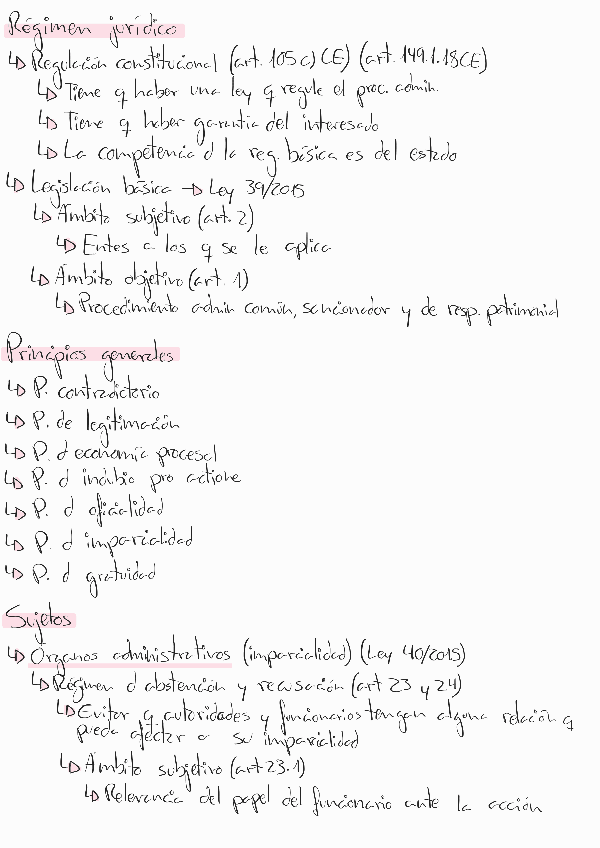 Régimen jurídico
↳ Regulación constitucional (art. 105 c) CE) (art. 149.1.18 CE)
↳ Tiene q haber una ley q regule el proc. admin.
↳ Tiene q haber garantía del interesado
↳ La competencia d la reg. básica es del estado
↳ Legislación básica → Ley 39/2015
↳ Ámbito subjetivo (art. 2)
↳ Entes a los q se le aplica
↳ Ámbito objetivo (art. 1)
↳ Procedimiento admin común, sancionador y de resp. patrimonial
Principios generales
↳ P. contradictorio
↳ P. de legitimación
↳ P. d economía procesal
↳ P. d indubio pro actione
↳ P. d oficialidad
↳ P. d imparcialidad
↳ P. d gratuidad
Sujetos
↳ Órganos administrativos (imparcialidad) (Ley 40/2015)
↳ Régimen d abstención y recusación (art 23 y 24)
↳ Evitar q autoridades y funcionarios tengan alguna relación q
pueda afectar a su imparcialidad
↳ Ámbito subjetivo (art 23.1)
↳ Relevancia del papel del funcionario ante la acción